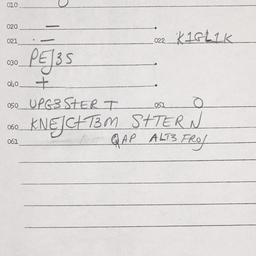 010
020 =
021 . = 022 K1GL1K
030 PEJ3S
040 +
050 UPG3STER T 051 O
060 KNEJCHT3M STTER N
061 QAP ALT3 FROJ